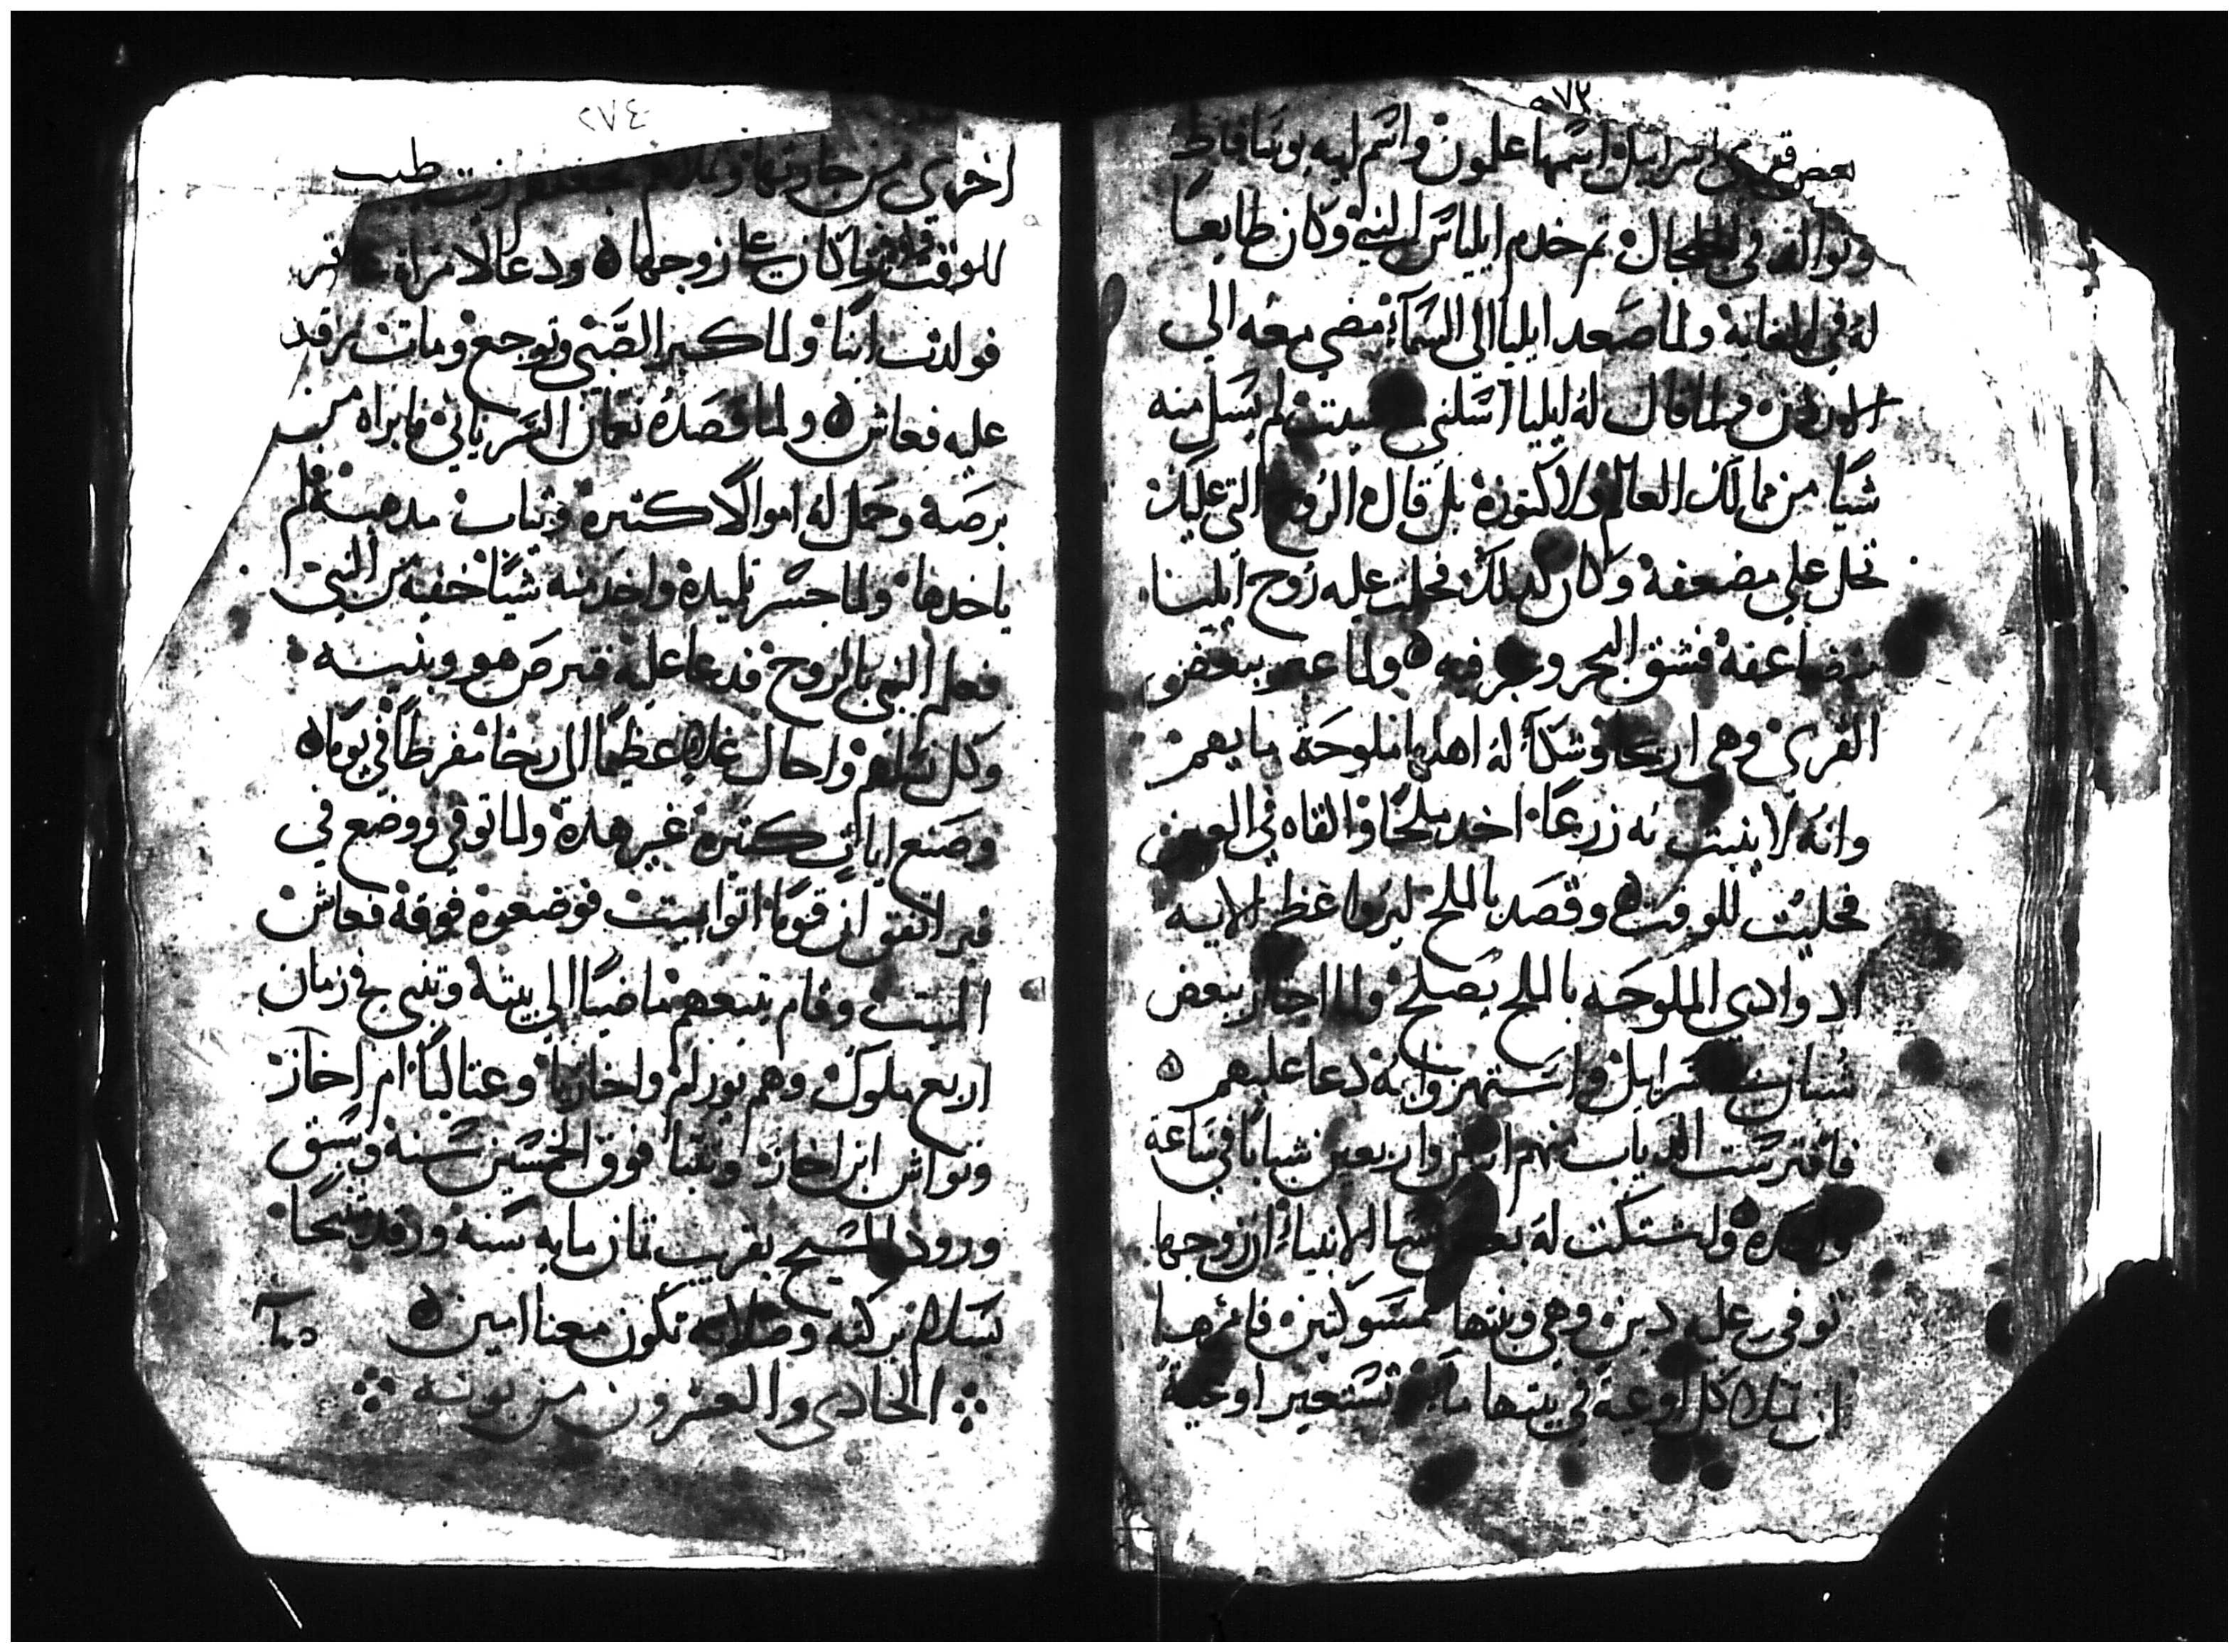 ٢٧٣
بعض قرى اسرايل اسمها علمون واسم ابيه يوسافاط
في الجبال ثم خدم ايلياس النبي وكان طايعا
له في الغاية ولما صعد ايليا الى السماء مضى معه الى
الاردن ولما قال له ايليا اسلني لم يسل منه
شيا من ممالك العالم ولا كنوزه بل قال الروح التي عليك
تحل علي مضعفة وكان كدلك فحلت عليه روح ايليا
مضاعفة فشق البحر وعبر فيه ولما عبر ببعض
القرى وهي اريحا وشكا له اهلها ملوحة مايهم
وانه لا ينبت به زرعا اخد ملحا والقاه في العين
فحليت للوقت وقصد بالملح ليروا عظم الايه
اد وادي الملوحه بالملح يصلح ولما اجتاز ببعض
شبان اسرايل واستهزوا به دعا عليهم
فافترست الدياب منهم اتنين واربعين شابا في ساعة
واحدة ولما اشتكت له بعض نسا الانبياء ان زوجها
توفي وعليه دين وهي وبنيها ممسوكين فامرها
ان تملا كل اوعية في بيتها ماء وتستعير اوعية
٢٧٤
اخرى من جاراتها وتملاهم فجعلهم زيت طيب
للوقت فاوفت ما كان على زوجها ودعا لامراة عاقر
فولدت ابنا ولما كبر الصبي وتوجع ومات رقد
عليه فعاش ولما قصده نعمان السرياني فابراه من
برصه وحمل له اموالا كتيره وتياب مدهبة فلم
ياخدها ولما جسر تلميده واخد منه شيا خفية من النبي
فعلم النبي بالروح فدعا عليه فبرص هو وبنيه
وكل نسلهم واحال غلاه عظيما الى رخا مفرطا في يوما
وصنع ايات كتيره غير هده ولما توفي ووضع في
قبر اتفق ان قوما اتوا بميت فوضعوه فوقه فعاش
الميت وقام يتبعهم ماضيا الى بيته وتنبى في زمان
اربع ملوك وهم يورام واخازيا وعتاليا ام اخاز
ويواش ابن اخاز وتنبا فوق الخمسين سنه وسبق
ورود المسيح بقريب تمان مايه سنه ورقد متنيحا
بسلام بركته وصلاته تكون معنا امين
الحادي والعشرون من بوونه